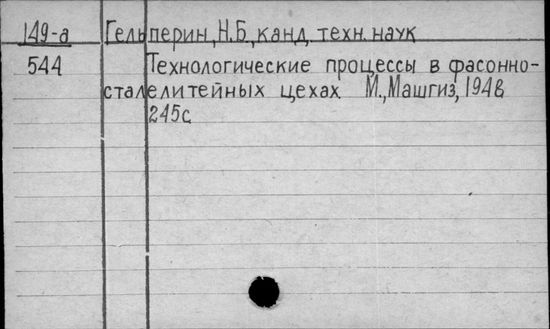 149-а Гельперин, Н.Б., канд. техн. наук
544 Технологические процессы в фасонно-
сталелитейных цехах М., Машгиз, 1948
245с.